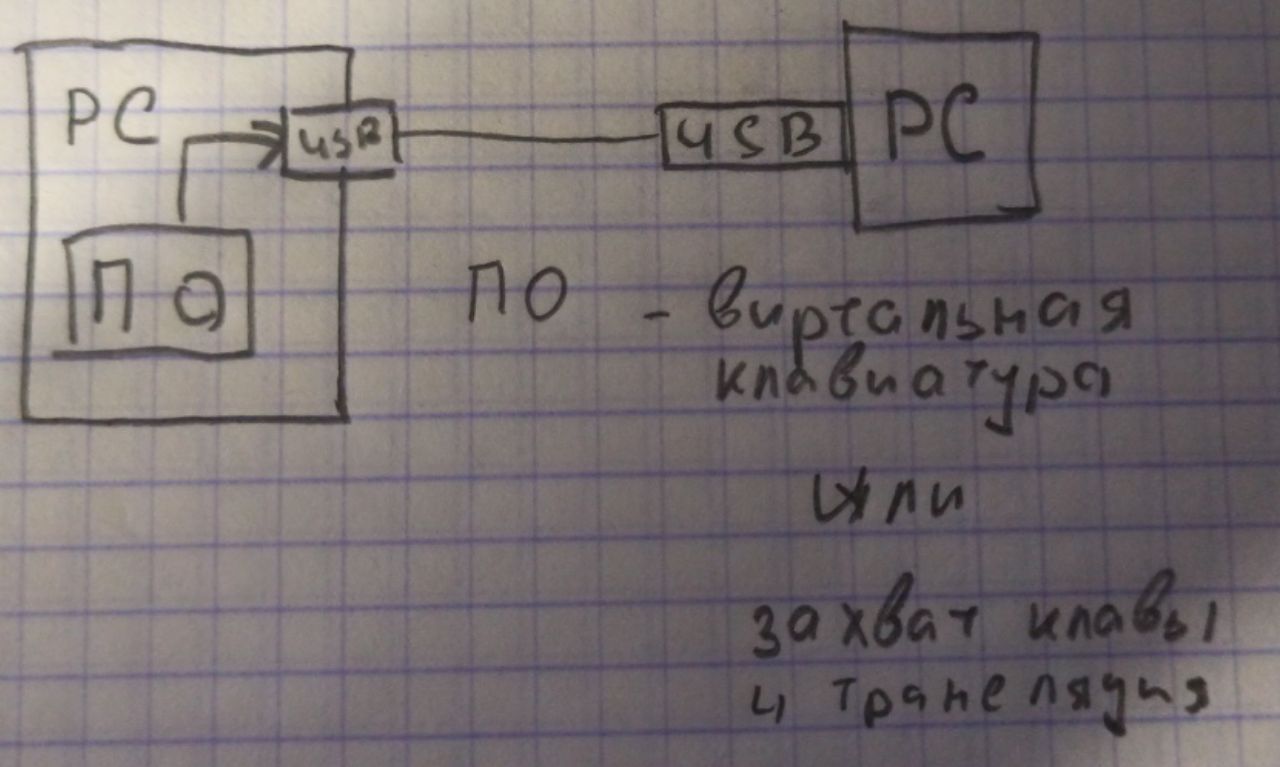 PC
USB
USB
PC
ПО
ПО - виртальная
клавиатура
или
захват клавы
и трансляция